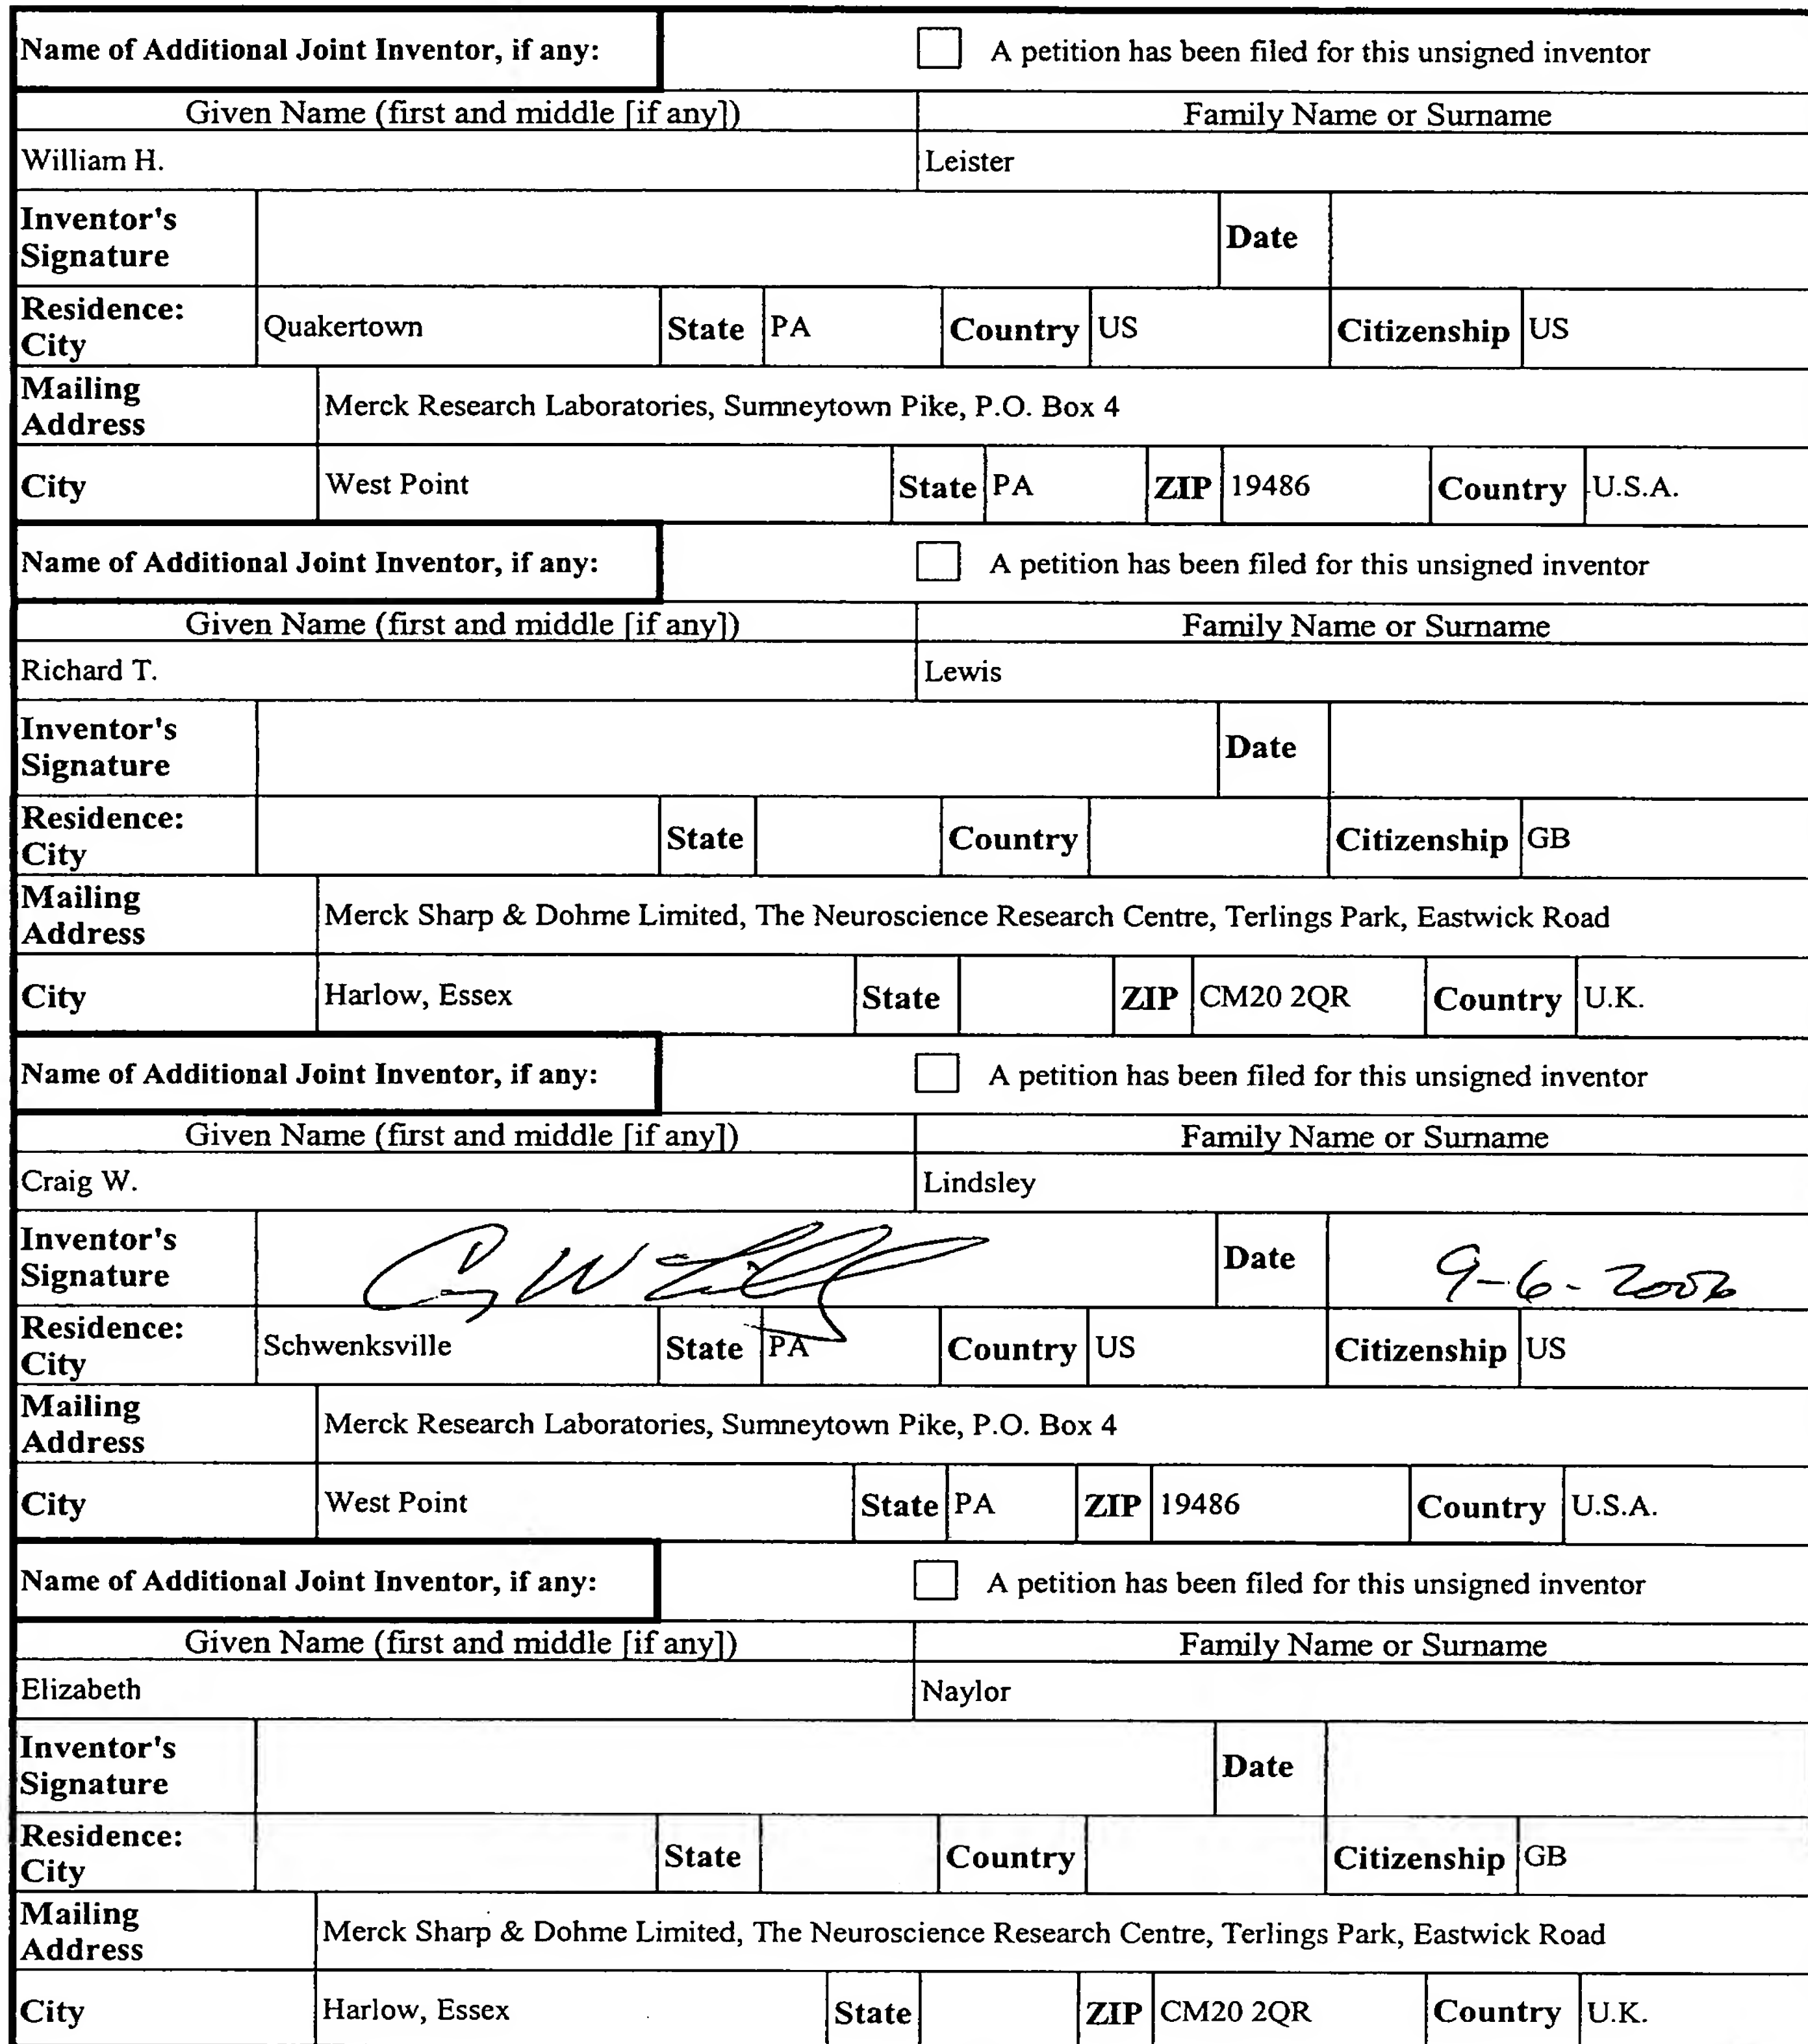 Name of Additional Joint Inventor, if any: A petition has been filed for this unsigned inventor
Given Name (first and middle [if any]) Family Name or Surname
William H. Leister
Inventor's Signature Date
Residence: City Quakertown State PA Country US Citizenship US
Mailing Address Merck Research Laboratories, Sumneytown Pike, P.O. Box 4
City West Point State PA ZIP 19486 Country U.S.A.
Name of Additional Joint Inventor, if any: A petition has been filed for this unsigned inventor
Given Name (first and middle [if any]) Family Name or Surname
Richard T. Lewis
Inventor's Signature Date
Residence: City State Country Citizenship GB
Mailing Address Merck Sharp & Dohme Limited, The Neuroscience Research Centre, Terlings Park, Eastwick Road
City Harlow, Essex State ZIP CM20 2QR Country U.K.
Name of Additional Joint Inventor, if any: A petition has been filed for this unsigned inventor
Given Name (first and middle [if any]) Family Name or Surname
Craig W. Lindsley
Inventor's Signature Date 9-6-
Residence: City Schwenksville State PA Country US Citizenship US
Mailing Address Merck Research Laboratories, Sumneytown Pike, P.O. Box 4
City West Point State PA ZIP 19486 Country U.S.A.
Name of Additional Joint Inventor, if any: A petition has been filed for this unsigned inventor
Given Name (first and middle [if any]) Family Name or Surname
Elizabeth Naylor
Inventor's Signature Date
Residence: City State Country Citizenship GB
Mailing Address Merck Sharp & Dohme Limited, The Neuroscience Research Centre, Terlings Park, Eastwick Road
City Harlow, Essex State ZIP CM20 2QR Country U.K.